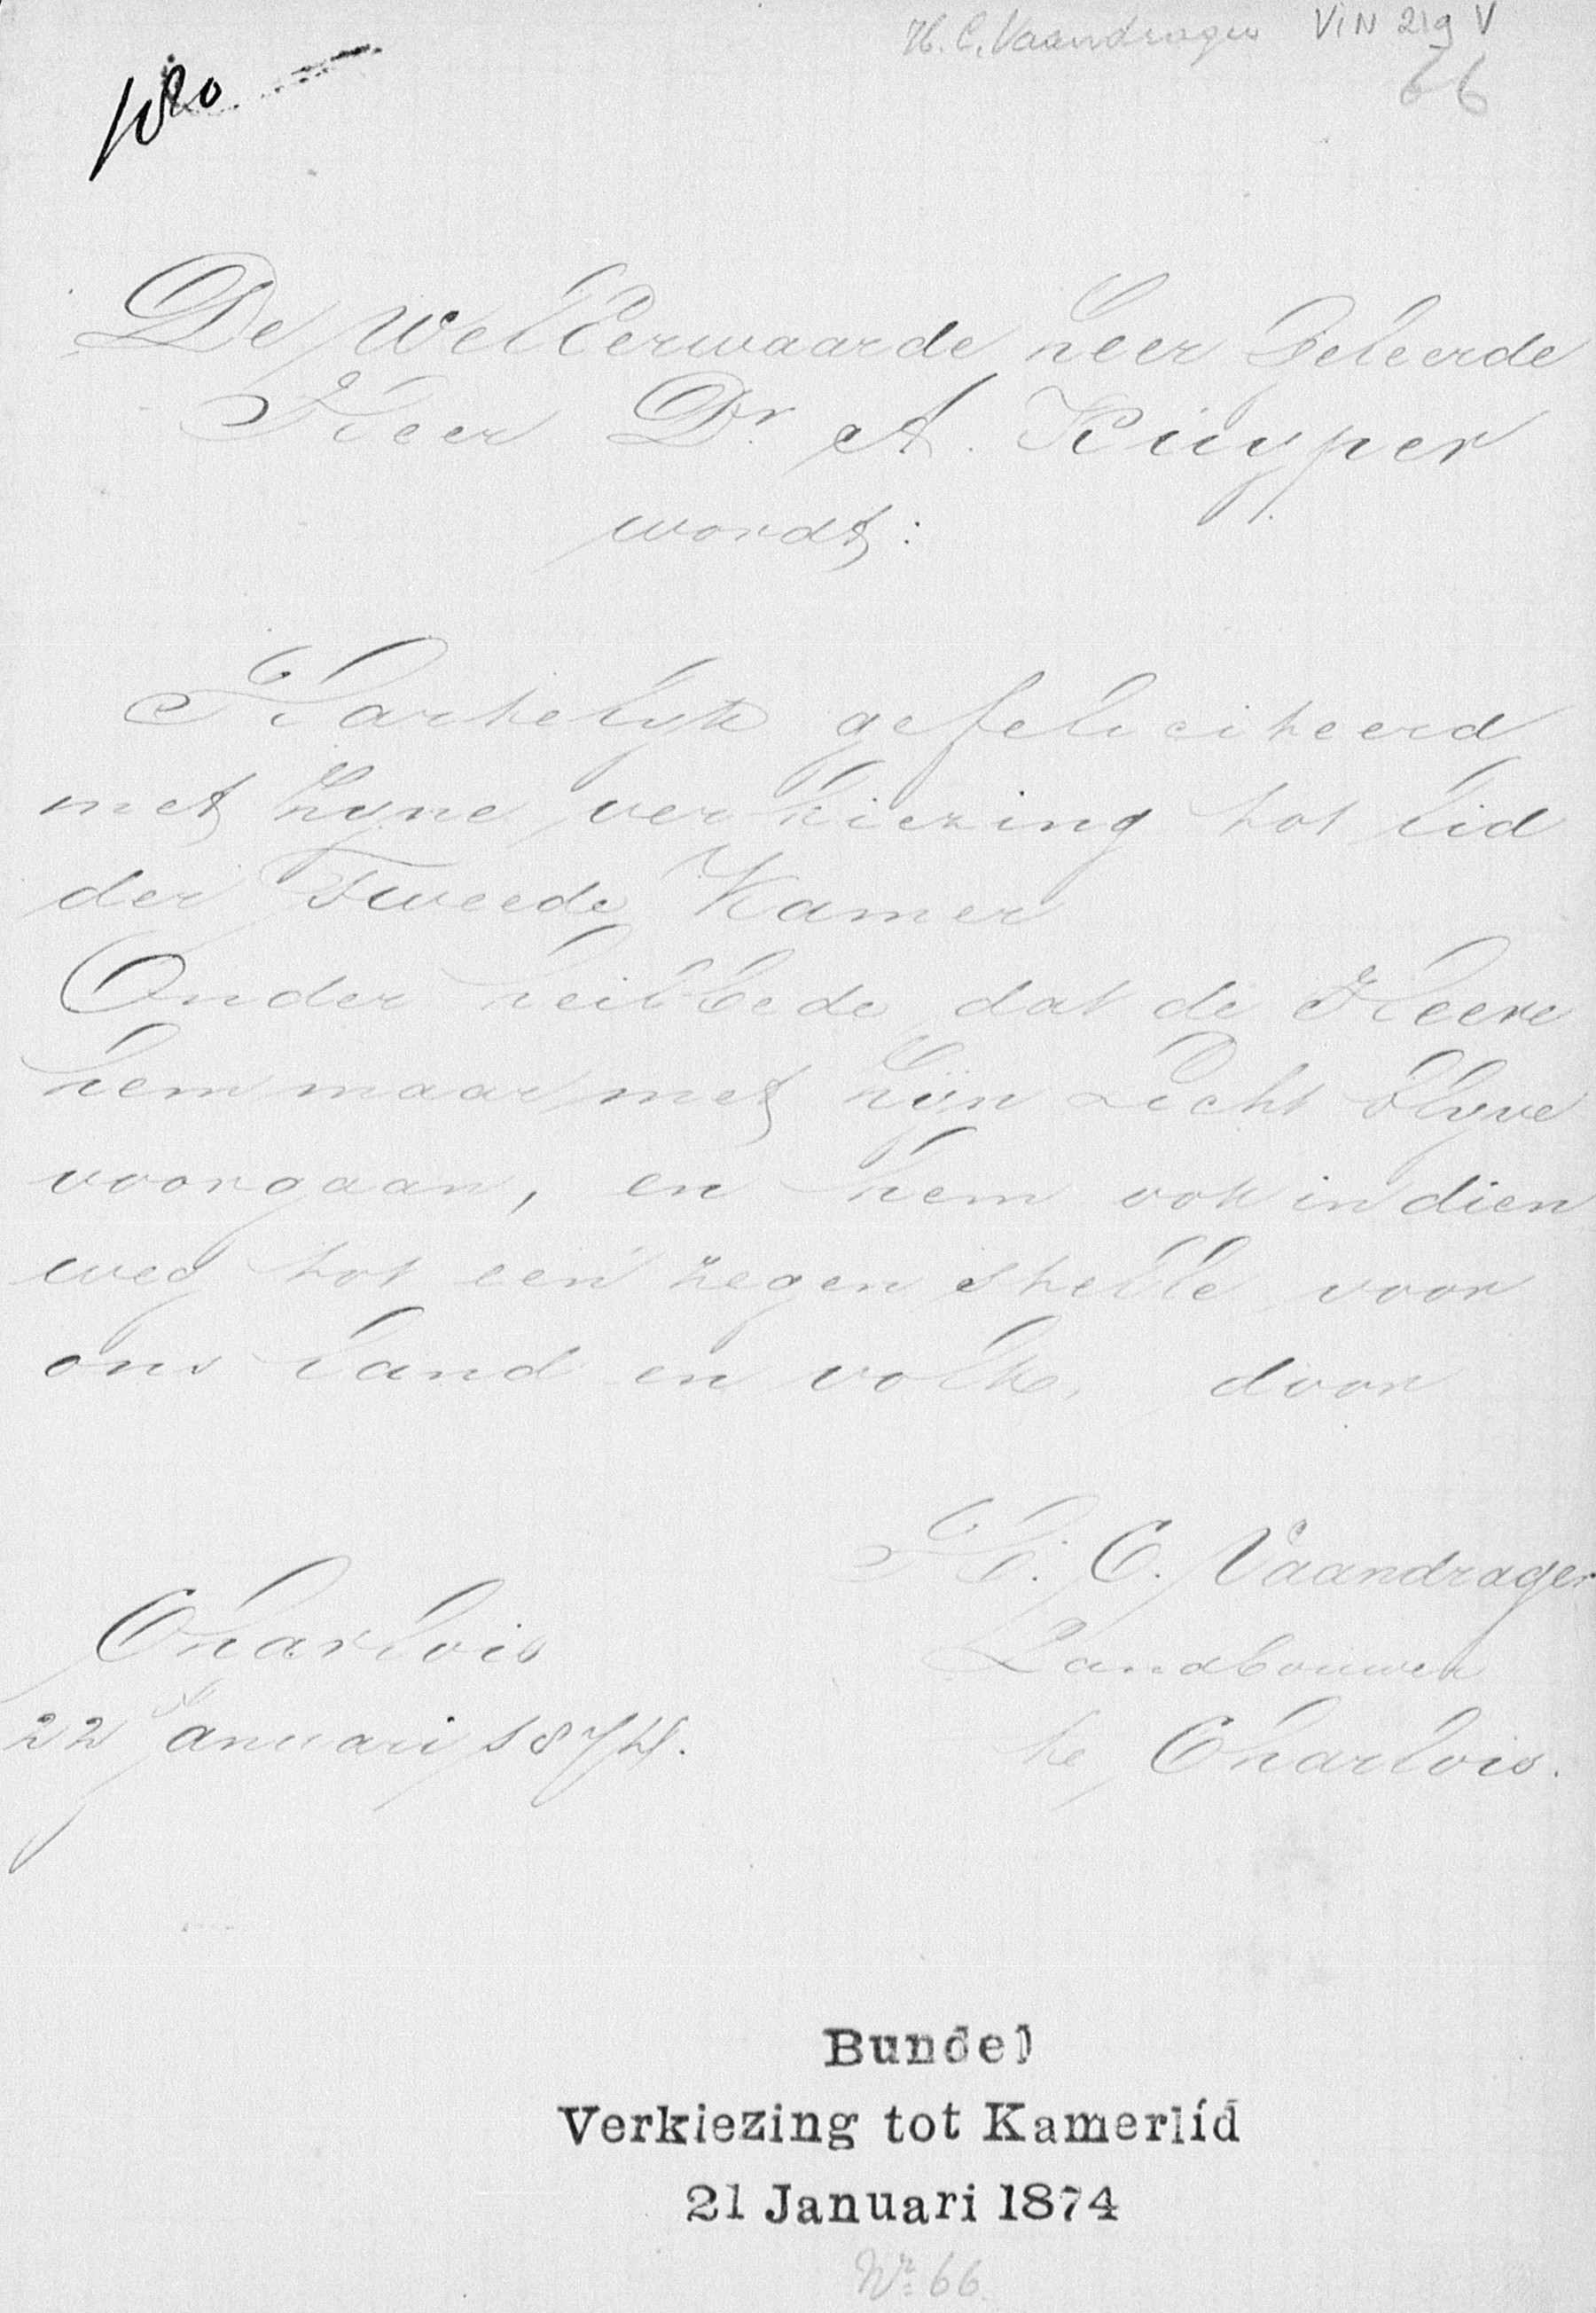 H. C. Vaandrager VIN 219 V
66
De WelEerwaarde heer Geleerde
Heer Dr. A. Kuyper
wordt:
Hartelyk gefeliciteerd
met zyne verkiezing tot lid
der Tweede Kamer
Onder heilbede dat de Heere
hem maar met zijn Licht blyve
voorgaan, en hem ook in dien
weg tot een zegen stelle voor
ons land en volk, door
H. C. Vaandrager
Landbouwer
te Charlois.
Charlois
22 Januari 1874.
Bundel
Verkiezing tot Kamerlid
21 Januari 1874
No 66